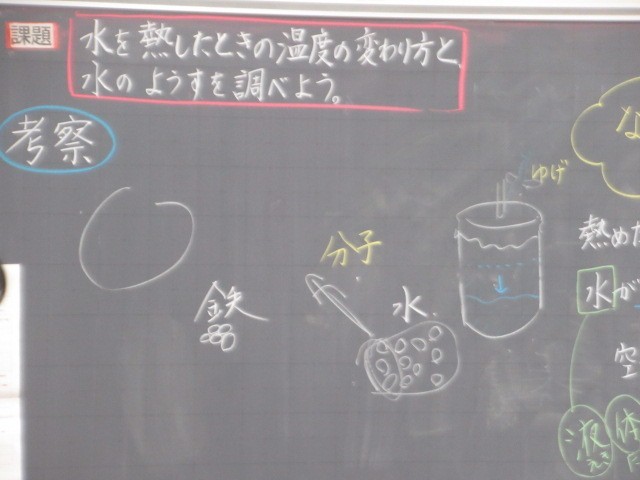 課題
水を熱したときの温度の変わり方と、
水のようすを調べよう。
考察
な
ゆげ
分子
鉄
水
熱めた
水が
空
液
体